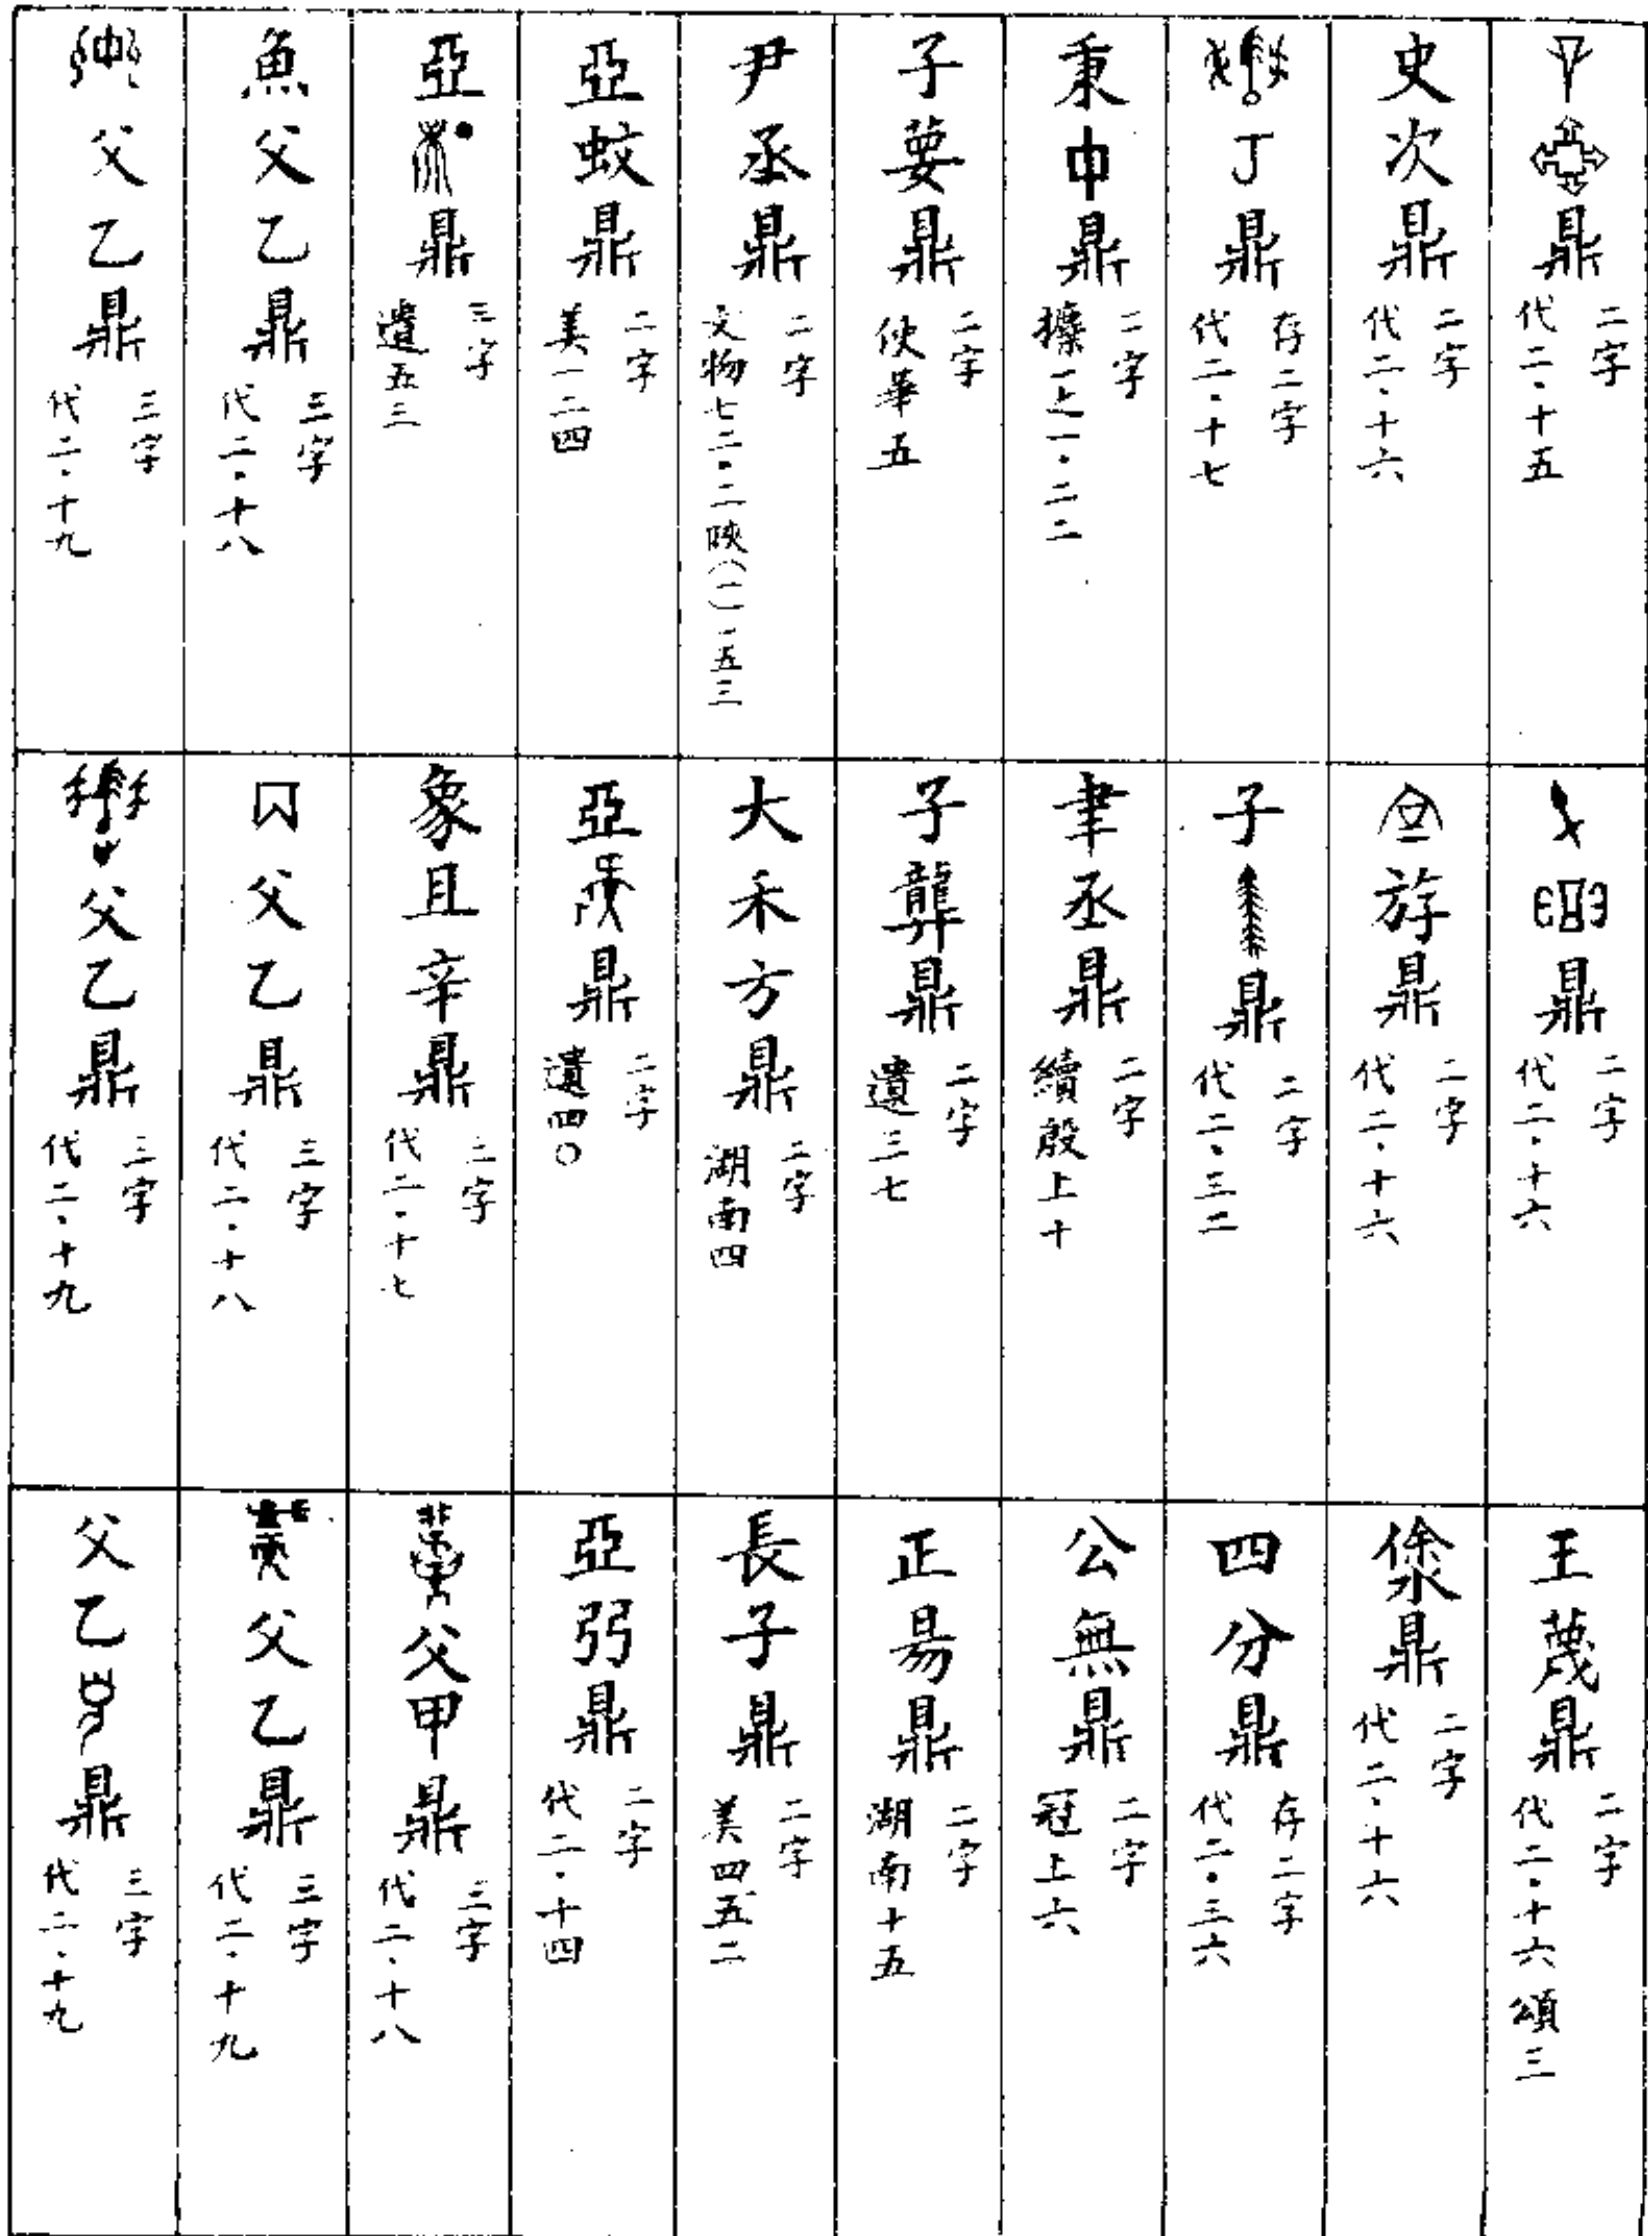 鼎 二字 代二·十五
史次鼎 二字 代二·十六
丁鼎 存二字 代二·十七
秉中鼎 二字 攈一之一·二二
子㜌鼎 二字 使華五
尹丞鼎 二字 文物七二·二陝(一)一五三
亞蚊鼎 二字 美一二四
亞鼎 三字 遺五三
魚父乙鼎 三字 代二·十八
父乙鼎 三字 代二·十九
鼎 二字 代二·十六
斿鼎 二字 代二·十六
子鼎 二字 代二·三二
聿丞鼎 二字 續殷上十
子龏鼎 二字 遺三七
大禾方鼎 二字 湖南四
亞鼎 二字 遺四〇
象且辛鼎 三字 代二·十七
父乙鼎 三字 代二·十八
父乙鼎 三字 代二·十九
王蔑鼎 二字 代二·十六頌三
鼎 二字 代二·十六
四分鼎 存二字 代二·三六
公無鼎 二字 冠上六
正昜鼎 二字 湖南十五
長子鼎 二字 美四五二
亞弜鼎 二字 代二·十四
父甲鼎 三字 代二·十八
父乙鼎 三字 代二·十九
父乙鼎 三字 代二·十九